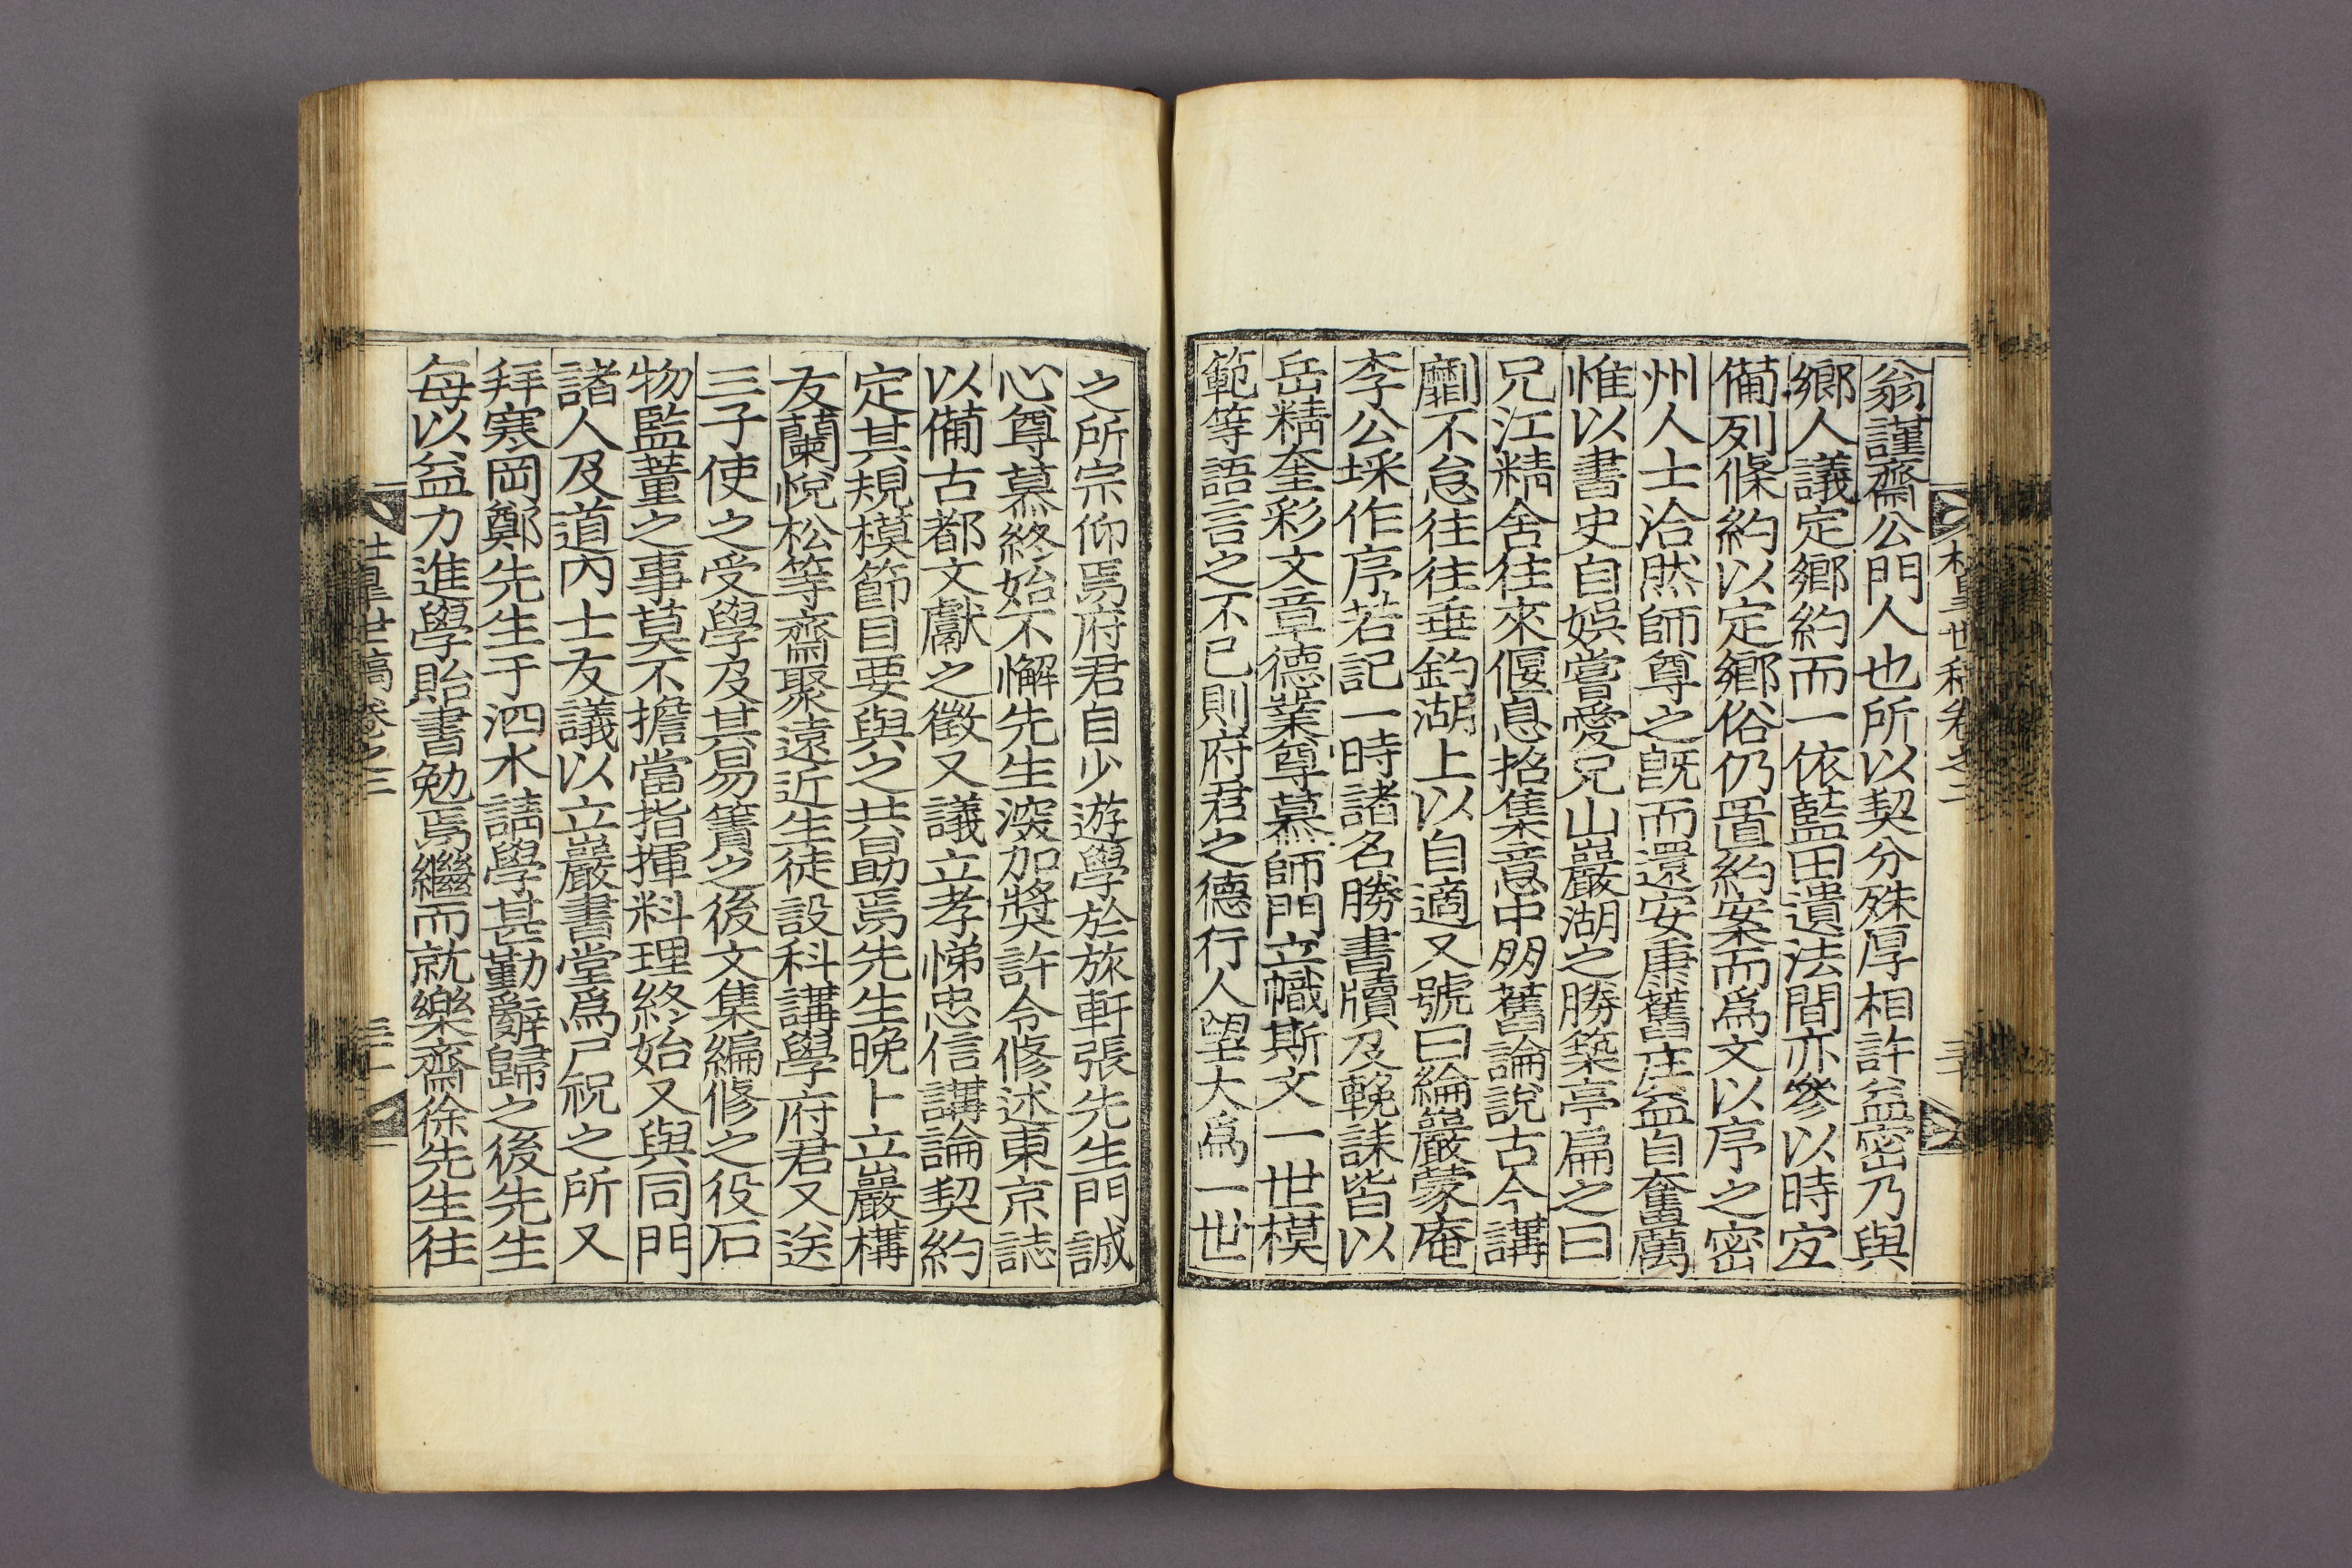 翁謹齋公門人也所以契分殊厚相許益密乃與
鄉人議定鄉約而一依藍田遺法間亦參以時宜
備列條約以定鄉俗仍置約案而爲文以序之密
州人士洽然師尊之旣而還安康舊庄益自奮厲
惟以書史自娛嘗愛兄山巖湖之勝築亭扁之曰
兄江精舍往來偃息招集意中朋舊論說古今講
劘不怠往往垂釣湖上以自適又號曰綸巖蒙庵
李公埰作序若記一時諸名勝書牘及輓誄皆以
岳精奎彩文章德業尊慕師門立幟斯文一世模
範等語言之不已則府君之德行人望大爲一世
之所宗仰焉府君自少遊學於旅軒張先生門誠
心尊慕終始不懈先生深加獎許令修述東京誌
以備古都文獻之徵又議立孝悌忠信講論契約
定其規模節目要與之共助焉先生晩卜立巖構
友蘭悅松等齋聚遠近生徒設科講學府君又送
三子使之受學及其易簀之後文集編修之役石
物監董之事莫不擔當指揮料理終始又與同門
諸人及道內士友議以立巖書堂爲尸祝之所又
拜寒岡鄭先生于泗水請學甚勤辭歸之後先生
每以益力進學貽書勉焉繼而就樂齋徐先生往
世稿卷之三